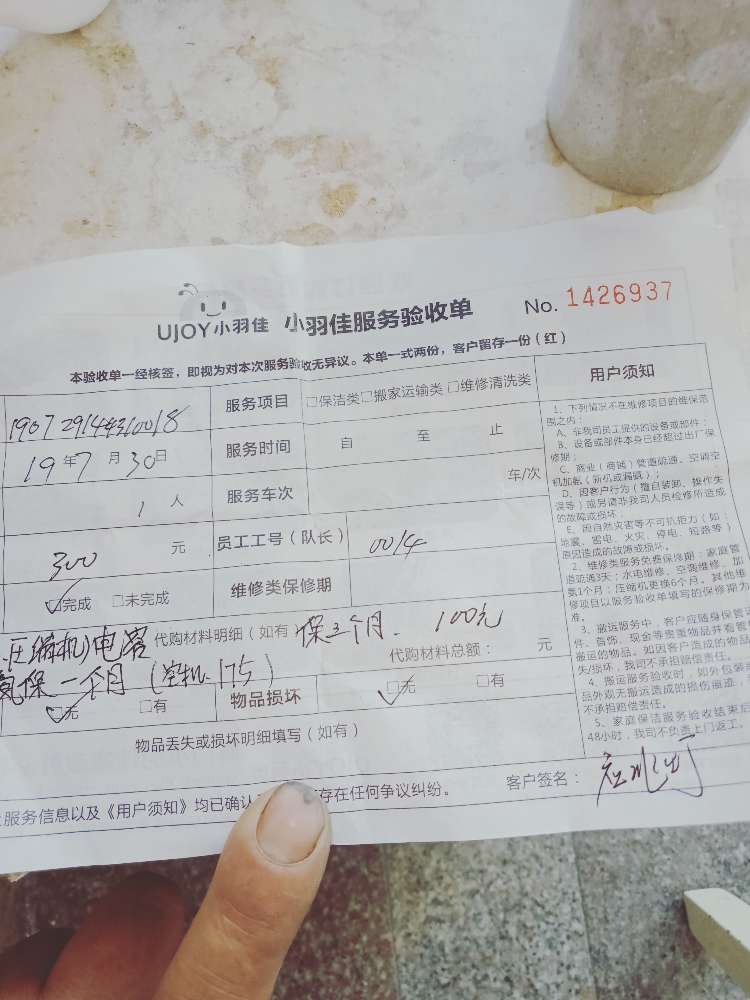 UJOY小羽佳 小羽佳服务验收单 No. 1426937
本验收单一经核签，即视为对本次服务验收无异议。本单一式两份，客户留存一份（红）
服务项目 □保洁类□搬家运输类□维修清洗类
19年7月30日 服务时间 自 至 止
1人 服务车次 车/次
300元 员工工号（队长） 0014
☑完成 □未完成 维修类保修期
压缩机）电容 代购材料明细（如有 保三个月. 100元
代购材料总额： 元
氟保一个月（空机.175）
☑无 □有 物品损坏 ☑无 □有
物品丢失或损坏明细填写（如有）
服务信息以及《用户须知》均已确认 存在任何争议纠纷。 客户签名：
用户须知
1、下列情况不在维修项目的维保范
围之内：
A、非我司员工提供的设备或部件；
B、设备或部件本身已经超过出厂保
修期；
C、商业（商铺）管道疏通、空调空
机加氟（新机或漏氟）；
D、因客户行为（擅自装卸、操作失
误等）或另请非我司人员检修所造成
的故障或损坏；
E、因自然灾害等不可抗拒力（如：
地震、雷电、火灾、停电、短路等）
原因造成的故障或损坏。
2、维修类服务免费保修期：家庭管
道疏通3天；水电维修、空调维修、加
氟1个月；压缩机更换6个月。其他维
修项目以服务验收单填写的保修期为
准。
3、搬运服务中，客户应随身保管
件、首饰、现金等贵重物品并看管
搬运的物品。如因客户造成的物品
失/损坏，我司不承担赔偿责任。
4、搬运服务验收时，如外包装
品外观无搬运造成的损伤痕迹，
不承担赔偿责任。
5、家庭保洁服务验收结束后
48小时，我司不负责上门返工。